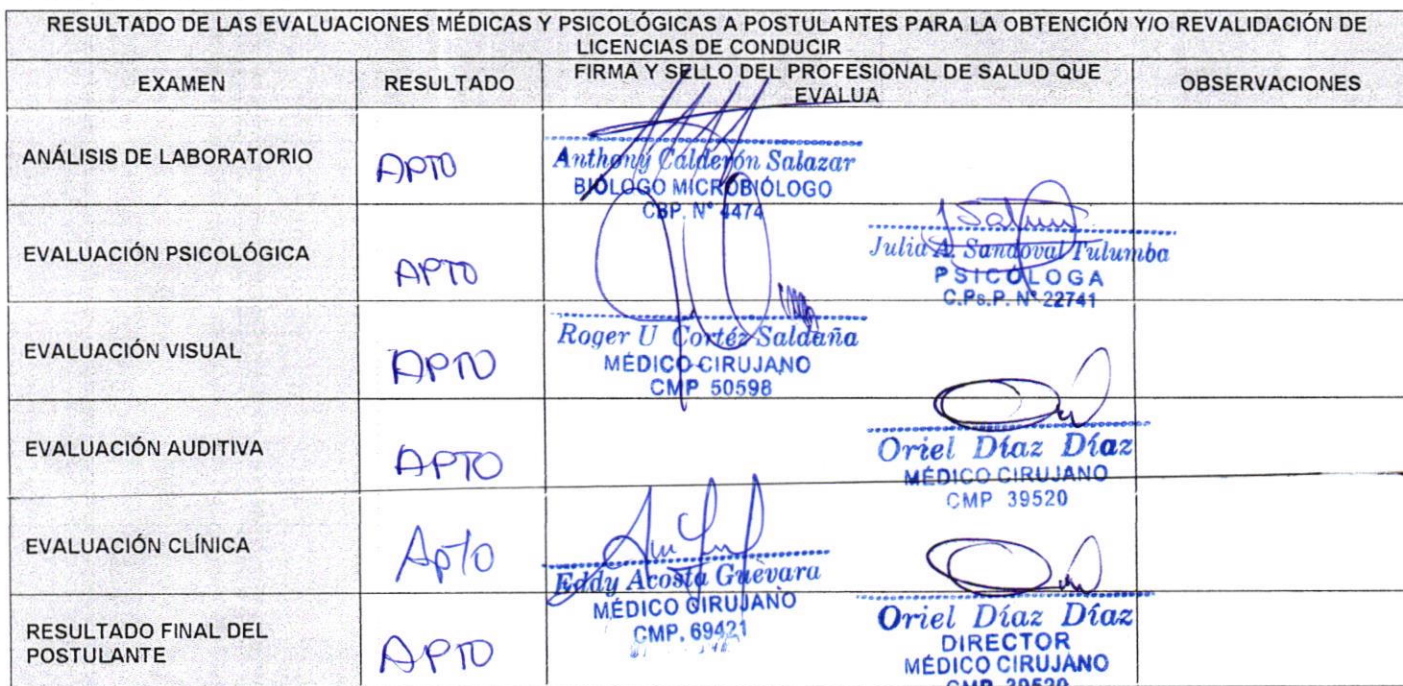 RESULTADO DE LAS EVALUACIONES MÉDICAS Y PSICOLÓGICAS A POSTULANTES PARA LA OBTENCIÓN Y/O REVALIDACIÓN DE
LICENCIAS DE CONDUCIR
EXAMEN
RESULTADO
FIRMA Y SELLO DEL PROFESIONAL DE SALUD QUE
EVALUA
OBSERVACIONES
ANÁLISIS DE LABORATORIO
APTO
Anthony Calderón Salazar
BIÓLOGO MICROBIÓLOGO
CBP. N° 4474
EVALUACIÓN PSICOLÓGICA
APTO
Julia A. Sandoval Tulumba
PSICÓLOGA
C.Ps.P. N° 22741
EVALUACIÓN VISUAL
APTO
Roger U Cortéz Saldaña
MÉDICO CIRUJANO
CMP 50598
EVALUACIÓN AUDITIVA
APTO
Oriel Díaz Díaz
MÉDICO CIRUJANO
CMP 39520
EVALUACIÓN CLÍNICA
Apto
Eddy Acosta Guevara
MÉDICO CIRUJANO
CMP. 69421
RESULTADO FINAL DEL
POSTULANTE
APTO
Oriel Díaz Díaz
DIRECTOR
MÉDICO CIRUJANO
CMP 39520